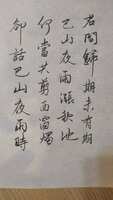 君問歸期未有期
巴山夜雨漲秋池
何當共剪西窗燭
卻話巴山夜雨時